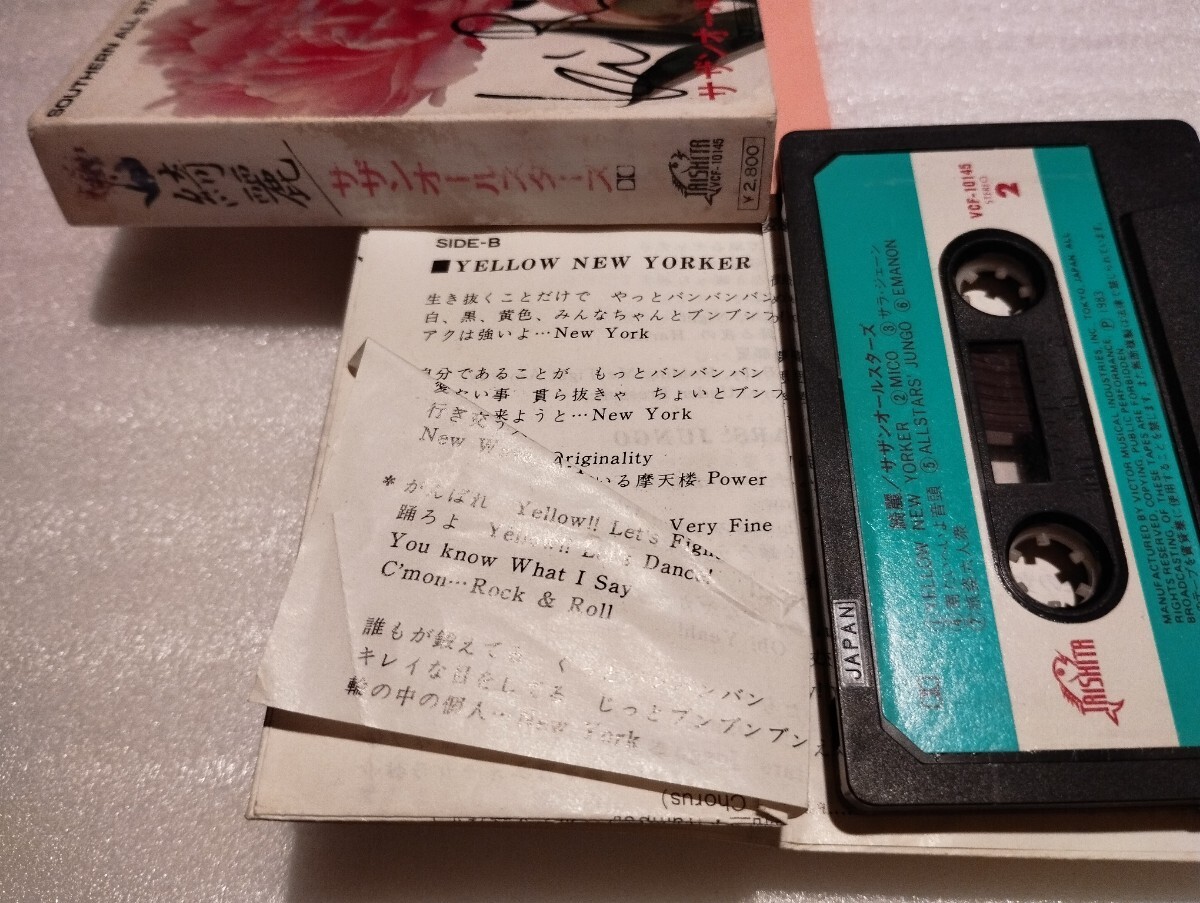 SOUTHERN ALL
サザンオー
綺麗/サザンオールスターズ
TAISHITA
VCF-10145
¥2,800
SIDE-B
■YELLOW NEW YORKER
生き抜くことだけで やっとバンバンバン
白、黒、黄色、みんなちゃんとブンブン
アクは強いよ…New York
分であることが もっとバンバンバン
い事 貫ら抜きゃ ちょいとブン
行き
来ようと…New York
New
Originality
いる摩天楼 Power
*がんばれ Yellow!! Let's
Very Fine
踊ろよ
You know What I Say
C'mon…Rock & Roll
誰もが鍛えて
バンバン
キレイな目をしてる じっとブンブンブン
輪の中の個人…New York
Chorus)
VCF-10145
STEREO
2
綺麗/サザンオールスターズ
①YELLOW NEW YORKER ②MICO ③サラ・ジェーン
音頭 ⑤ALLSTARS' JUNGO ⑥EMANON
MANUFACTURED BY VICTOR MUSICAL INDUSTRIES, INC. TOKYO, JAPAN ALL
RIGHTS RESERVED. THESE TAPES ARE FORBIDDEN
BROADCASTING OF COPYING, PUBLIC PERFORMANCE Ⓟ 1983
JAPAN
TAISHITA